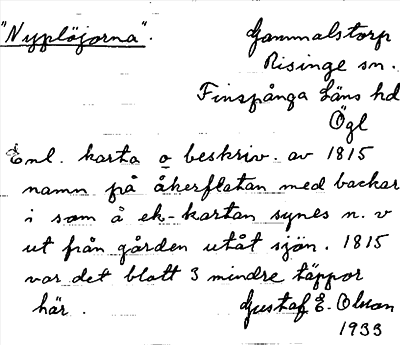 "Nyplöjorna".
Gammalstorp
Risinge sn.
Finspånga Läns hd
Ögl
Enl. karta o beskriv. av 1815
namn på åkerflatan med backar
i som å ek-kartan synes n.v
ut från gården utåt sjön. 1815
var det blott 3 mindre täppor
här. Gustaf E. Olsson
1933